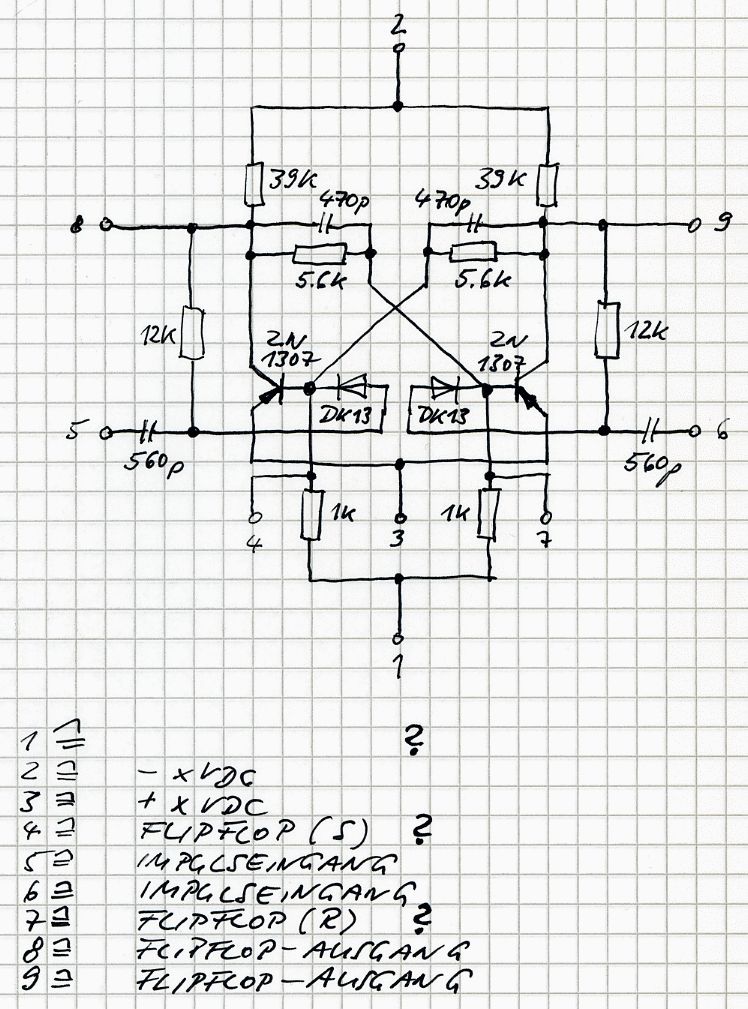 2
39K
39K
470p
470p
8
9
5.6K
5.6K
12K
2N
1307
2N
1307
12K
DK13
DK13
5
6
560p
560p
4
1K
3
1K
7
1
1 ≙ ?
2 ≙ - x VDC
3 ≙ + x VDC
4 ≙ FLIPFLOP (S) ?
5 ≙ IMPULSEINGANG
6 ≙ IMPULSEINGANG
7 ≙ FLIPFLOP (R) ?
8 ≙ FLIPFLOP-AUSGANG
9 ≙ FLIPFLOP-AUSGANG